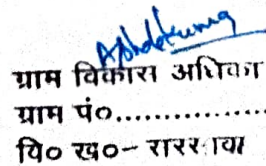 ग्राम विकास अधिका
ग्राम पं०................
वि० ख०-